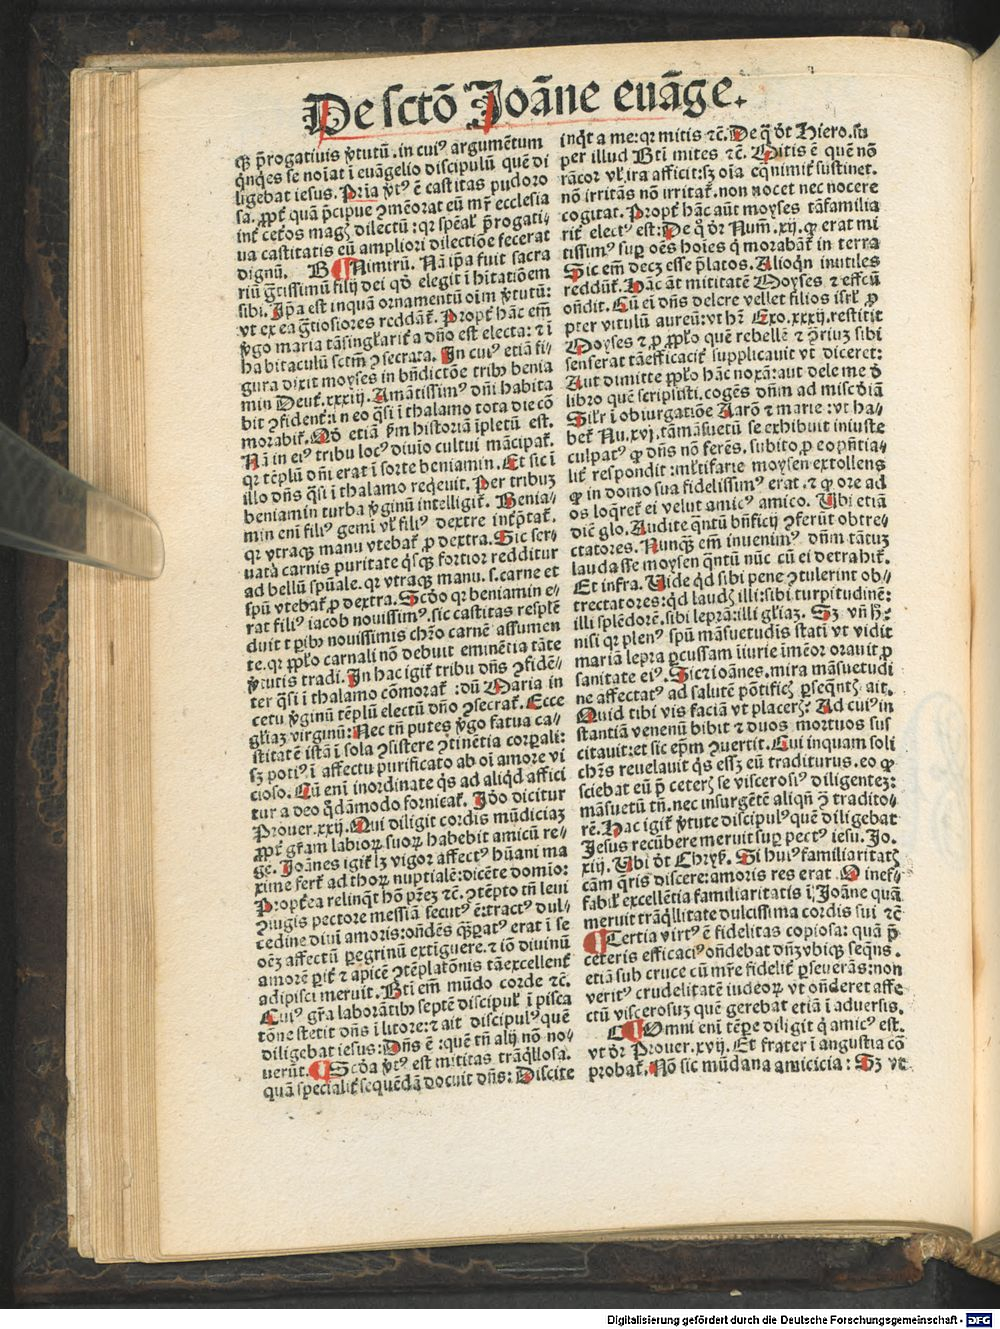 De sctō Joāne euāge.
qȝ p̄rogatiuis v̓tutū. in cui⁹ argumētum
q̓nq̄es se noīat ī euāgelio discipulū quē di
ligebat iesus. Prīa v̓t⁹ ē castitas pudoro
sa. ꝓpt̓ quā p̄cipue ꝯmēorat eū mr̄ ecclesia
int̓ cet̓os magꝭ dilectū: qꝛ sp̄eal̓r p̄rogati⸗
ua castitatis eū ampliori dilectiōe fecerat
dignū. B Nimirū. Nā ip̄a fuit sacra
riū gr̄tissimū filij dei qd̓ elegit ī hitatiōem
sibi. Ip̄a est inquā ornamentū oīm v̓tutū:
vt ex ea gr̄tiosiores reddāt̓. Propt̓ hāc em̄
v̓go maria tā singl̓arit̓ a dn̄o est electa: ⁊ ī
habitaculū sctm̄ ꝯsecrata. In cui⁹ etiā fi⸗
gura dixit moyses in bn̄dictōe tribꝰ benia
min Deut̓. xxxiij. Amātissim⁹ dn̄i habita
bit ꝯfident̓: in eo q̄si ī thalamo tota die cō
morabit̓. Qd̓ etiā p̄m historiā īpletū est.
Nā in ei⁹ tribu loc⁹ diuīo cultui mācipat̓.
qꝛ tēplū dn̄i erat ī sorte beniamin. Et sic ī
illo dn̄s q̄si ī thalamo req̓euit. Per tribuȝ
beniamin turba v̓ginū intelligit̓. Benia⸗
min eni fili⁹ gemi vl̓ fili⁹ dextre int̓p̄tat̓.
qꝛ vtraqȝ manu vtebat̓ ꝓ dextra. Sic ser⸗
uata carnis puritate q̓sqȝ fortior redditur
ad bellū spūale. qꝛ vtraqȝ manu. s. carne et
spū vtebat̓ ꝓ dextra. Scd̓o qꝛ beniamin e⸗
rat fili⁹ iacob nouissim⁹. sic castitas resplē
duit t p̄ibꝰ nouissimis chr̄o carnē assumen
te. qꝛ ꝓpl̓o carnali nō debuit eminētia tāte
v̓tutis tradi. In hac igit̓ tribu dn̄s ꝯfidē⸗
ter q̄si ī thalamo cōmorat̓: dū Maria in
cetu v̓ginū tēplū electū dn̄o ꝯsecrat̓. Ecce
gl̓iaȝ virginū: Nec tn̄ putes v̓go fatua ca⸗
stitatē istā ī sola ꝯsistere ꝯtinētia corp̱ali:
sȝ poti⁹ ī affectu purificato ab oī amore vi
cioso. Cū eni inordinate q̓s ad aliqd̓ affici
tur a deo q̄dāmodo fornicat̓. Id̓o dicitur
Prouer. xxij. Qui diligit cordis mūdiciaȝ
ꝓpt̓ gr̄am labioꝝ suoꝝ habebit amicū re⸗
ge. Joānes igit̓ lȝ vigor affect⁹ hūani ma
xime fert̓ ad thoꝝ nuptialē: dicēte domīo:
Propt̓ea relinqt̓ hō pr̄eȝ ⁊c̄. ꝯtēpto tn̄ leui
ꝯiugis pectore messiā secut⁹ ē: tract⁹ dul⸗
cedine diuī amoris: on̄dēs q̄spat⁹ erat ī se
oēȝ affectū p̱egrinū extiguere. ⁊ iō diuinū
amorē p̱it̓ ⁊ apicē ꝯtēplatōnis tā excellent̓
adipisci meruit. Bt̄i em̄ mūdo corde ⁊c̄.
Cui⁹ gr̄a laborātibꝰ septē discipul̓ ī pisca
tōne stetit dn̄s ī litore: ⁊ ait discipul⁹ quē
diligebat iesus: Dn̄s ē: quē tn̄ alij nō no⸗
uerūt. Scd̓a v̓t⁹ est mititas trāq̓llosa.
quā specialit̓ sequēdā docuit dn̄s: Discite
inqt̓ a me: qꝛ mitis ⁊c̄. De q̓ dt̓ Hiero. su
per illud Bt̄i mites ⁊c̄. Mitis ē quē nō
rācor vl̓ ira afficit: sȝ oīa eq̓nimit̓ sustinet.
nō irritās nō irritat̓. non nocet nec nocere
cogitat. Propt̓ hāc aūt moyses tā familia
rit̓ elect⁹ est: De q̓ dr̄ Num̄. xij. ꝙ erat mi
tissim⁹ sup̱ oēs hoīes q̓ morabāt̓ in terra
Sic em̄ decȝ esse p̄latos. Alioqn̄ inutiles
reddūt̓. Hāc āt mititatē Moyses ⁊ effectū
on̄dit. Cū ei dn̄s delere vellet filios isrl̓ ꝓ
pter vitulū aureū: vt hr̄ Exo. xxxij. restitit
Moyses ⁊ ꝓ ꝓpl̓o quē rebellē ⁊ ꝯriuȝ sibi
senserat tā efficacit̓ supplicauit vt diceret:
Aut dimitte ꝓpl̓o hāc noxā: aut dele me d̓
libro quē scripsisti. cogēs dn̄m ad mīscdīā
Sil̓r ī obiurgatiōe Aarō ⁊ marie: vt ha⸗
bet̓ Nu. xvj. tā māsuetū se exhibuit iniuste
culpat⁹ ꝙ dn̄s nō ferēs. subito ꝓ eo pn̄tia⸗
lit̓ respondit: ml̓tifarie moysen extollens
ꝙ in domo sua fidelissim⁹ erat. ⁊ ꝙ ore ad
os loq̓ret̓ ei velut amic⁹ amico. Ubi etiā
dic̄ glo. Audite q̄ntū bn̄ficij ꝯferūt obtre⸗
ctatores. Nunqȝ em̄ inuenim⁹ dn̄m tātuȝ
laudasse moysen q̄ntū nūc cū ei detrahit̓.
Et infra. Uide qd̓ sibi pene ꝯtulerint ob⸗
trectatores: qd̓ laudꝭ illi: sibi turpitudinē:
illi splēdorē. sibi leprā: illi gl̓iaȝ. Sȝ vn̄ hꝰ:
nisi qꝛ plen⁹ spū māsuetudis statī vt vidit
mariā lepra p̱cussam iīurie īmēor orauit ꝓ
sanitate ei⁹. Sic ⁊ ioānes. mira māsuetudi
ne affectat⁹ ad salutē pōtificꝭ p̱seqn̄tꝭ ait.
Quid tibi vis faciā vt placerꝭ? Ad cui⁹ in
stantiā venenū bibit ⁊ duos mortuos sus
citauit: et sic ep̄m ꝯuertit. Cui inquam soli
chr̄s reuelauit q̓s essȝ eū traditurus. eo ꝙ
sciebat eū p̄ ceterꝭ se viscerosi⁹ diligenteȝ:
māsuetū tn̄. nec insurgētē aliqn̄ ꝯ tradito⸗
rē. Hac igit̓ v̓tute discipul⁹ quē diligebat
Jesus recūbere meruit sup̱ pect⁹ iesu. Jo.
xiij. Ubi dt̓ Chryſ. Si hui⁹ familiaritatꝭ
cām q̓ris discere: amoris res erat. O inef⸗
fabil̓ excellētia familiaritatis ī Joāne quā
meruit trāq̓llitate dulcissima cordis sui ⁊c̄
Tertia virt⁹ ē fidelitas copiosa: quā p̄
ceteris efficaci⁹ on̄debat dn̄ȝ vbiqȝ seqn̄s.
etiā sub cruce cū mr̄e fidelit̓ p̱seuerās: non
verit⁹ crudelitatē iudeoꝝ vt on̄deret affe
ctū viscerosuȝ quē gerebat etiā ī aduersis.
C Omni eni tēp̱e diligit q̓ amic⁹ est.
vt dr̄ Prouer. xvij. Et frater ī angustia cō
probat̓. Nō sic mūdana amicicia: Sȝ vt
Digitalisierung gefördert durch die Deutsche Forschungsgemeinschaft - DFG